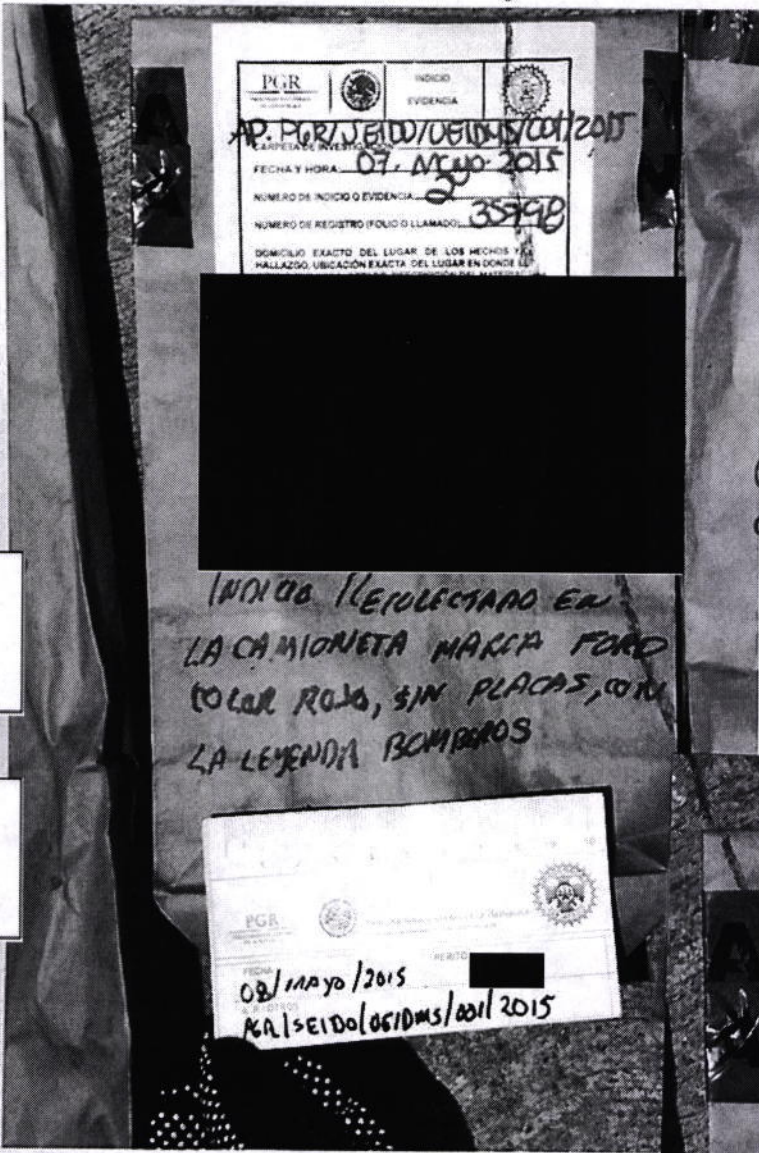 PGR
INDICIO
EVIDENCIA
AP. PGR/SEIDO/UEIDMS/001/2015
CARPETA DE INVESTIGACIÓN
FECHA Y HORA 07. Mayo. 2015
NÚMERO DE INDICIO O EVIDENCIA 2
NÚMERO DE REGISTRO (FOLIO O LLAMADO) 35798
DOMICILIO EXACTO DEL LUGAR DE LOS HECHOS Y
HALLAZGO, UBICACIÓN EXACTA DEL LUGAR EN DONDE
INDICIO RECOLECTADO EN
LA CAMIONETA MARCA FORD
COLOR ROJO, SIN PLACAS, CON
LA LEYENDA BOMBEROS
PGR
FECHA
PERITO
08/MAYO/2015
PGR/SEIDO/UEIDMS/001/2015